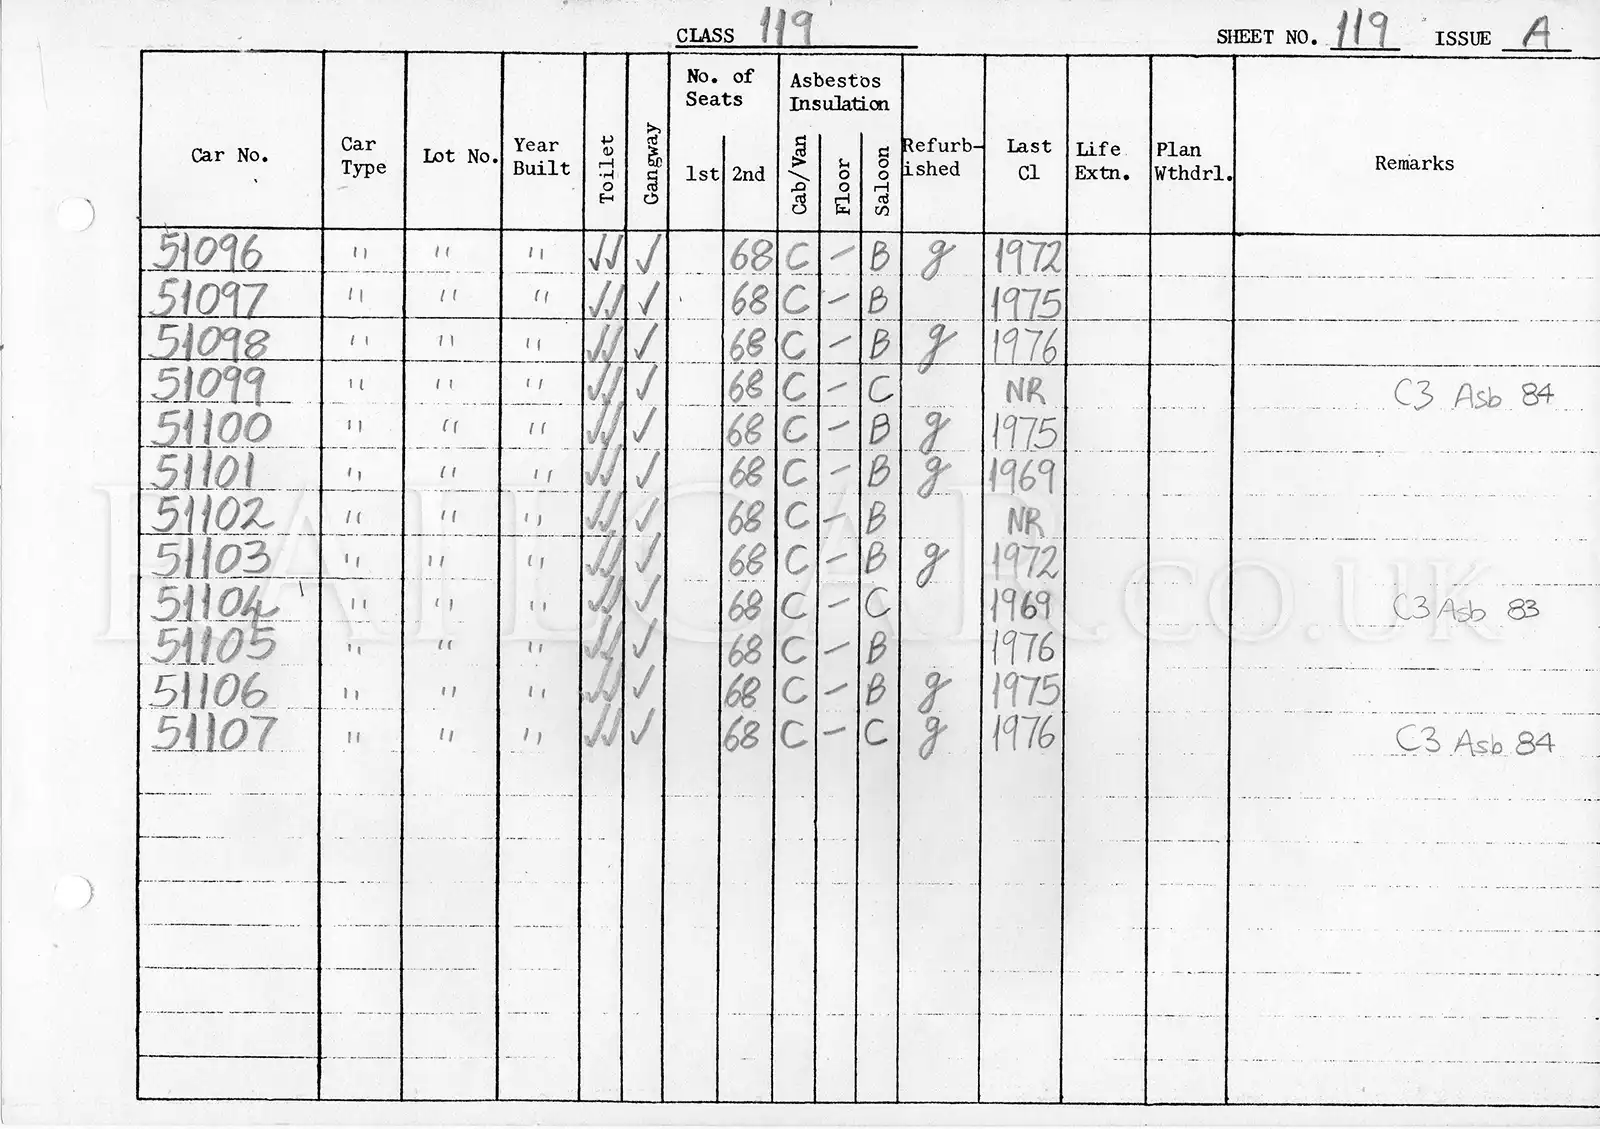 CLASS 119 SHEET NO. 119 ISSUE A
Car No. Car Type Lot No. Year Built Toilet Gangway No. of Seats 1st 2nd Asbestos Insulation Cab/Van Floor Saloon Refurb-ished Last Cl Life Extn. Plan Wthdrl. Remarks
51096 " " " ✓✓ ✓ 68 C - B g 1972
51097 " " " ✓✓ ✓ 68 C - B 1975
51098 " " " ✓✓ ✓ 68 C - B g 1976
51099 " " " ✓✓ ✓ 68 C - C NR C3 Asb 84
51100 " " " ✓✓ ✓ 68 C - B g 1975
51101 " " " ✓✓ ✓ 68 C - B g 1969
51102 " " " ✓✓ ✓ 68 C - B NR
51103 " " " ✓✓ ✓ 68 C - B g 1972
51104 " " " ✓✓ ✓ 68 C - C 1969 C3 Asb 83
51105 " " " ✓✓ ✓ 68 C - B 1976
51106 " " " ✓✓ ✓ 68 C - B g 1975
51107 " " " ✓✓ ✓ 68 C - C g 1976 C3 Asb 84
RAILCAR.CO.UK